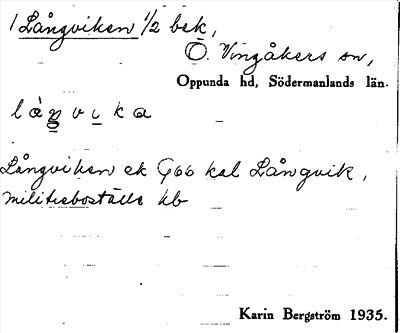 1 Långviken 1/2 bek,
Ö. Vingåkers sn,
Oppunda hd, Södermanlands län.
làŋvika
Långviken ek G66 kal Långvik,
militieboställe hb
Karin Bergström 1935.